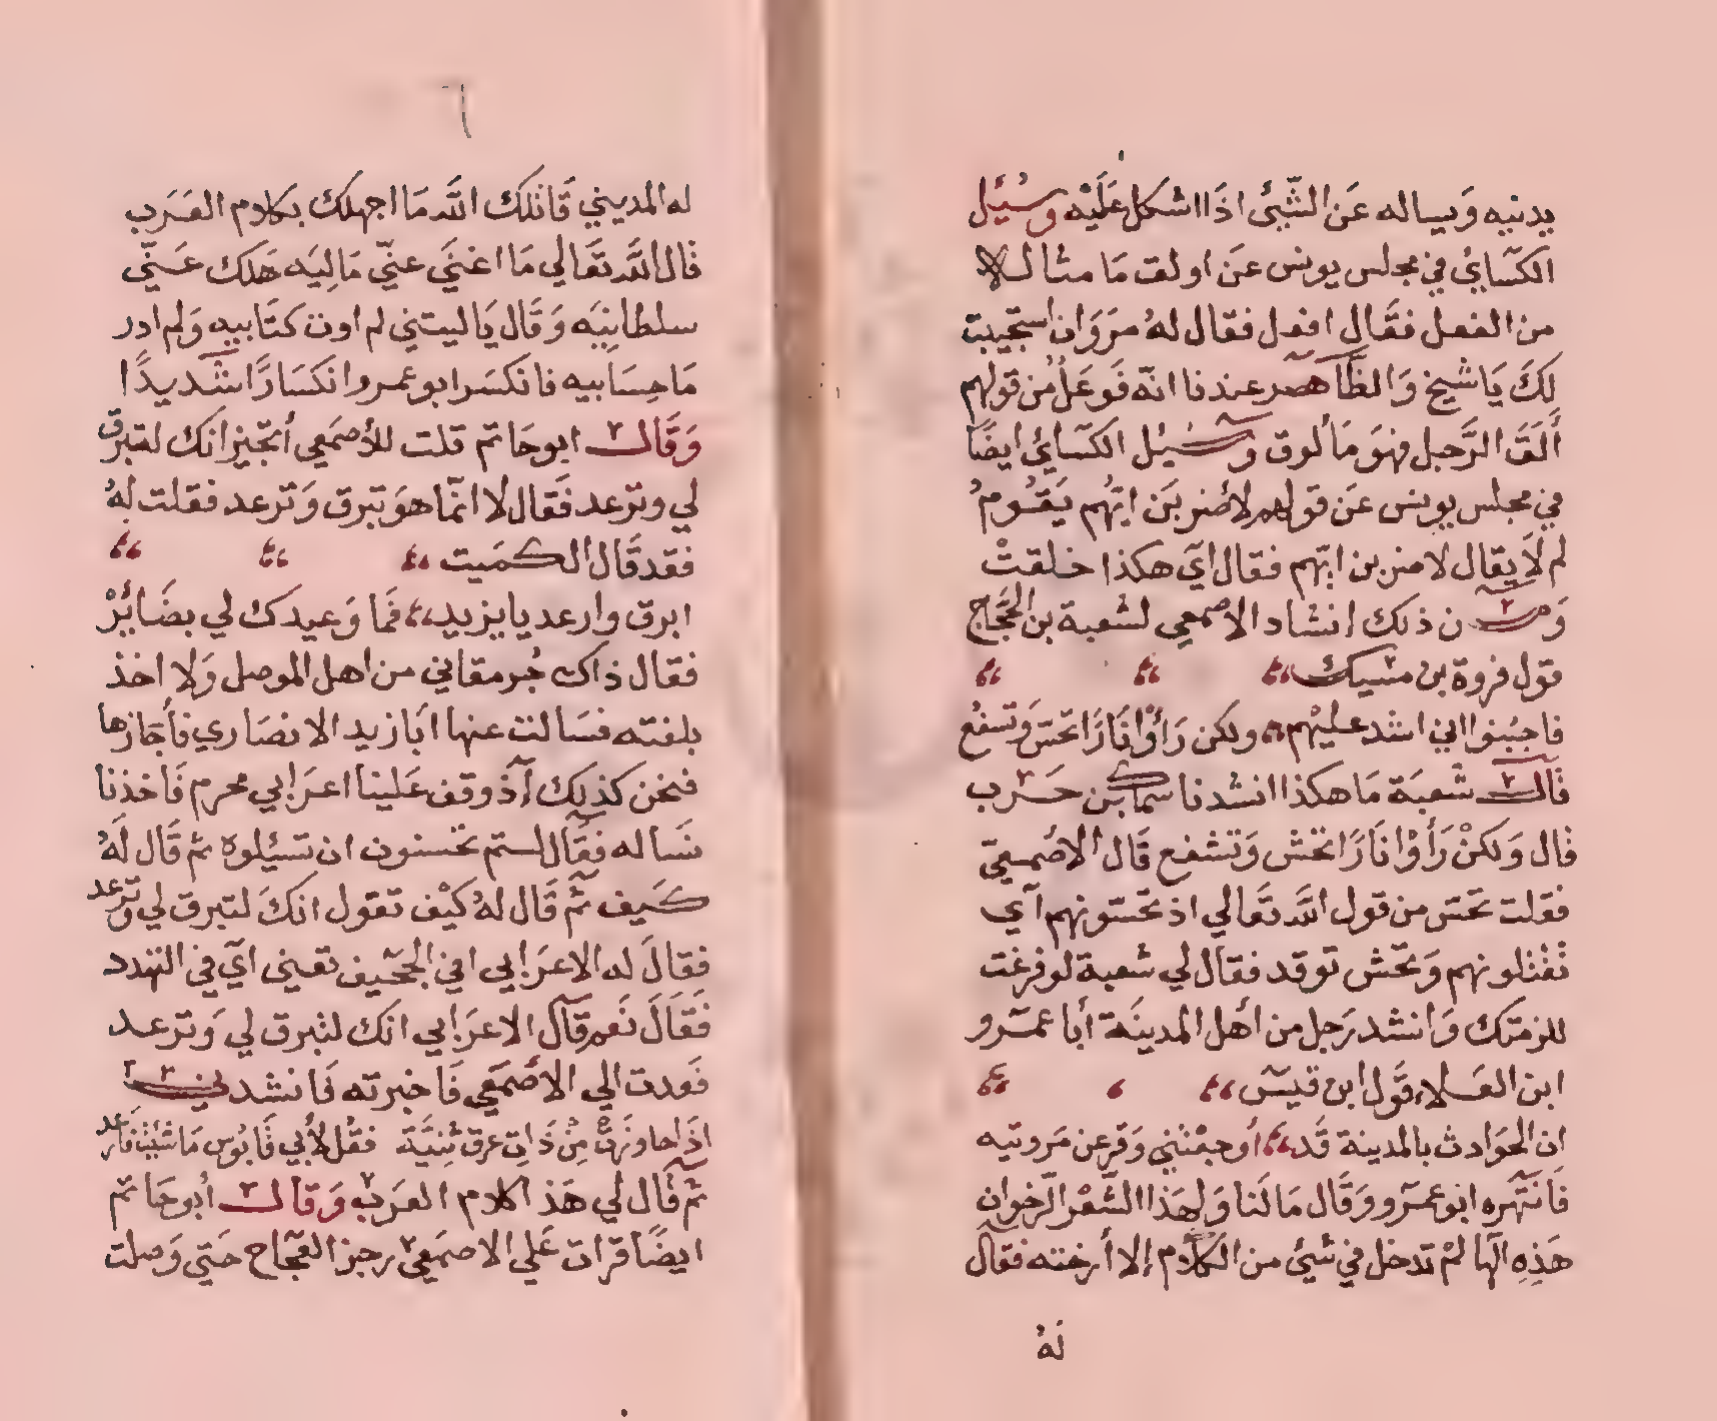 يدنيه وَيساله عَن الشّيئ اذَا اشكل عَلَيْه وَسُئِل
الكسَايُ في مجلس يونس عَن اولق مَا مثالــه
من الفعل فقَال افعل فقال لهُ مَروَان استجيبت
لكَ يَا شيخ وَالظَاهر عندنا انّه فَوعَلُ من قولهم
أُلقَ الرَّجل فهوَ مَألوق وسُئِل الكسَايُ ايضًا
في مجلس يونس عَن قولهم لاضربَن ايّهم يَقُومُ
لم لاَ يقال لاضربن ايّهم فقال ايّ هكذا خلقتْ
وَمـــن ذلك انشاد الاصمعي لشعبة بن الحَجَّاج
قول فروة بن مسيك
فاجبُنوا اني اشد عليهم ولكن رَأوْا نَارًا تحسّ وَتسفعُ
قَال شعبَة مَا هكذا انشدنا سماك بن حَرب
قال وَلكنْ رَأوْا نَارًا تحش وَتشفع قَال الاصْمعيّ
فقلت تحسّ من قول اللّه تعَالي اذ تحسّونهم أي
تقْتلونهم وَتحّش توقد فقال لي شعبة لو فرغت
للزمتك وَانشد رَجل من أهل المدينَة أبا عمَرو
ابن العَلاء قَول ابن قيسَ
ان الحَوادث بالمدينة قَد أوجعْنني وَقرعن مَروتيه
فَانتَهَره ابو عمَرو وَقَال مَا لَنا وَلِهَذا الشّعْر الرّخوان
هَذِهِ الهَا لمْ تدخل في شيئ من الكَلام إلا أرخته فقال
لهُ
٦
له المديني قَاتلك اللَّه مَا اجهلك بكلام العَرَب
قال اللَّه تعَالي مَا اغنَي عنيّ مَاليَه هَلك عَنيّ
سلطانيَه وَقَال يَا ليتني لم اوت كتَابيه وَلم ادر
مَا حِسَابيه فانكسَر ابو عمرو انكسَارًا شديدًا
وَقَال ابو حَاتم قلت للأصمَعي أتجيز انك لتبرق
لي وترعد فقَال لا انمّا هوَ تبرق وَترعد فقلت لهُ
فقد قَال الكمَيت
ابرق وارعد يا يزيد فمَا وَعيدك لي بضَائِرْ
فقال ذاك جُرمقاني من اهل الموصل وَلا اخذ
بلغته فسَالت عنها ابَا زيد الانصَاري فأجَازها
فنحن كذلِك إذ وقف عَلينا اعرَابي محرم فَاخذنا
نسَاله فقَال لستم تحسنون ان تسئلوه ثم قَال لَهُ
كيَف ثم قَال لهُ كيْف تقول انكَ لتبرق لي وَترعد
فقالَ له الاعرَابي افي الجخيف تعني أي في التهدد
فقَالَ نَعم قَال الاعرَابي انك لتبرق لي وَترعد
فَعدت الي الاصْمَعي فَاخبرته فَانشدني
اذَا جاوزَتْ مِنْ ذَاتِ عرق ثنِيَّة فقُل لأبي قَابُوس مَا شِئتَ فَارعد
ثم قَال لي هَذا كلام العَرَب وَقال أبو حَاتم
ايضًا قرات عَلي الاصمَعي رجز العجَّاج حَتي وَصلت